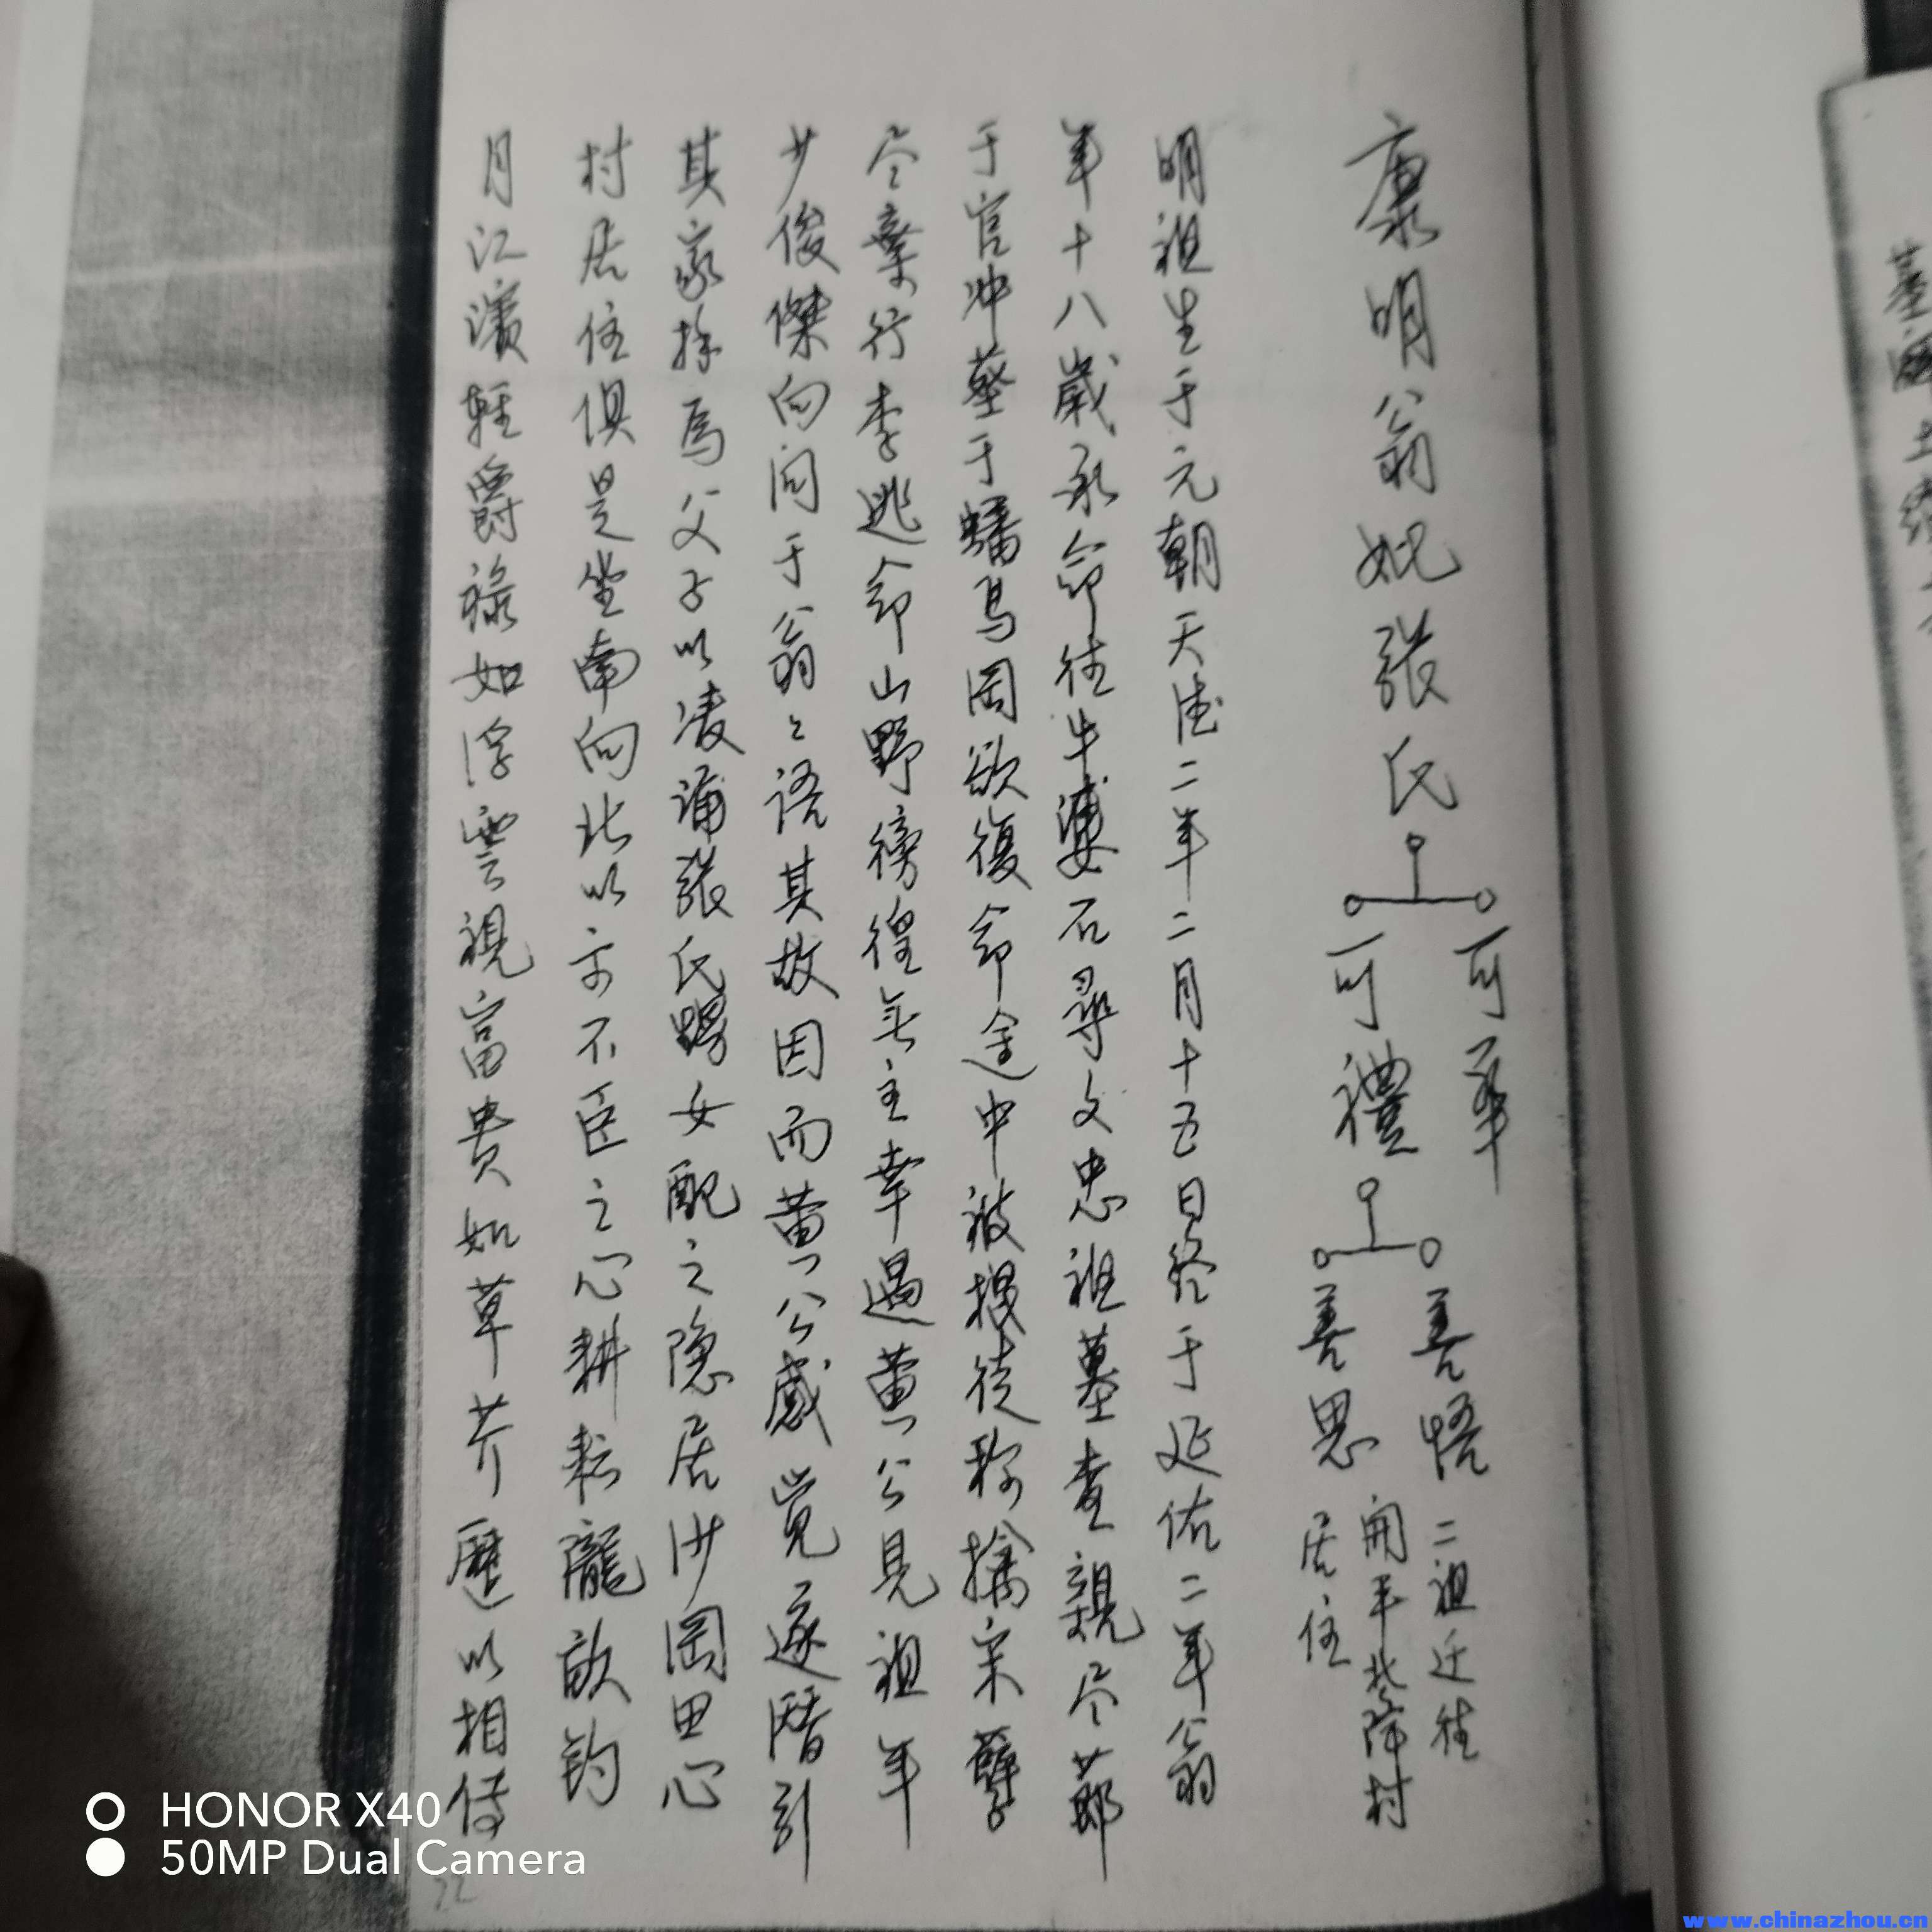 康明翁妣張氏
可華
可禮
善悟
善思
二祖迁往
開平北降村
居住
明祖生于元朝天德二年二月十五日終于延佑二年翁
年十八歲承命往牛婆石尋文忠祖墓查親尽葬
于官冲墓于蟠馬岡欲復命途中被搜徒称擒宋孽
尽棄行李逃命山野徬徨無主幸遇黄公見祖年
少俊傑向问于翁々語其故因而黄公感覚遂潛引
其家拵為父子以凌蒲張氏甥女配之隐居沙岡田心
村居住俱是坐南向北以示不臣之心耕耘隴畝钓
月江濱輕爵祿如浮雲視富貴如草芥歷以相傳
22
HONOR X40
50MP Dual Camera
www.chinazhou.cn